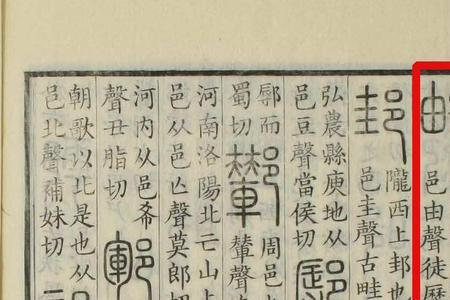 邑由聲徒歷
隴西上邽也
邑圭聲古畦
弘農縣庾地从
邑豆聲當侯切
鄏而
蜀切
周邑
輦聲
河南洛陽北亡山上
邑从亾聲莫郎切
河内从邑希
聲丑脂切
朝歌以北是也从
邑北聲補妹切